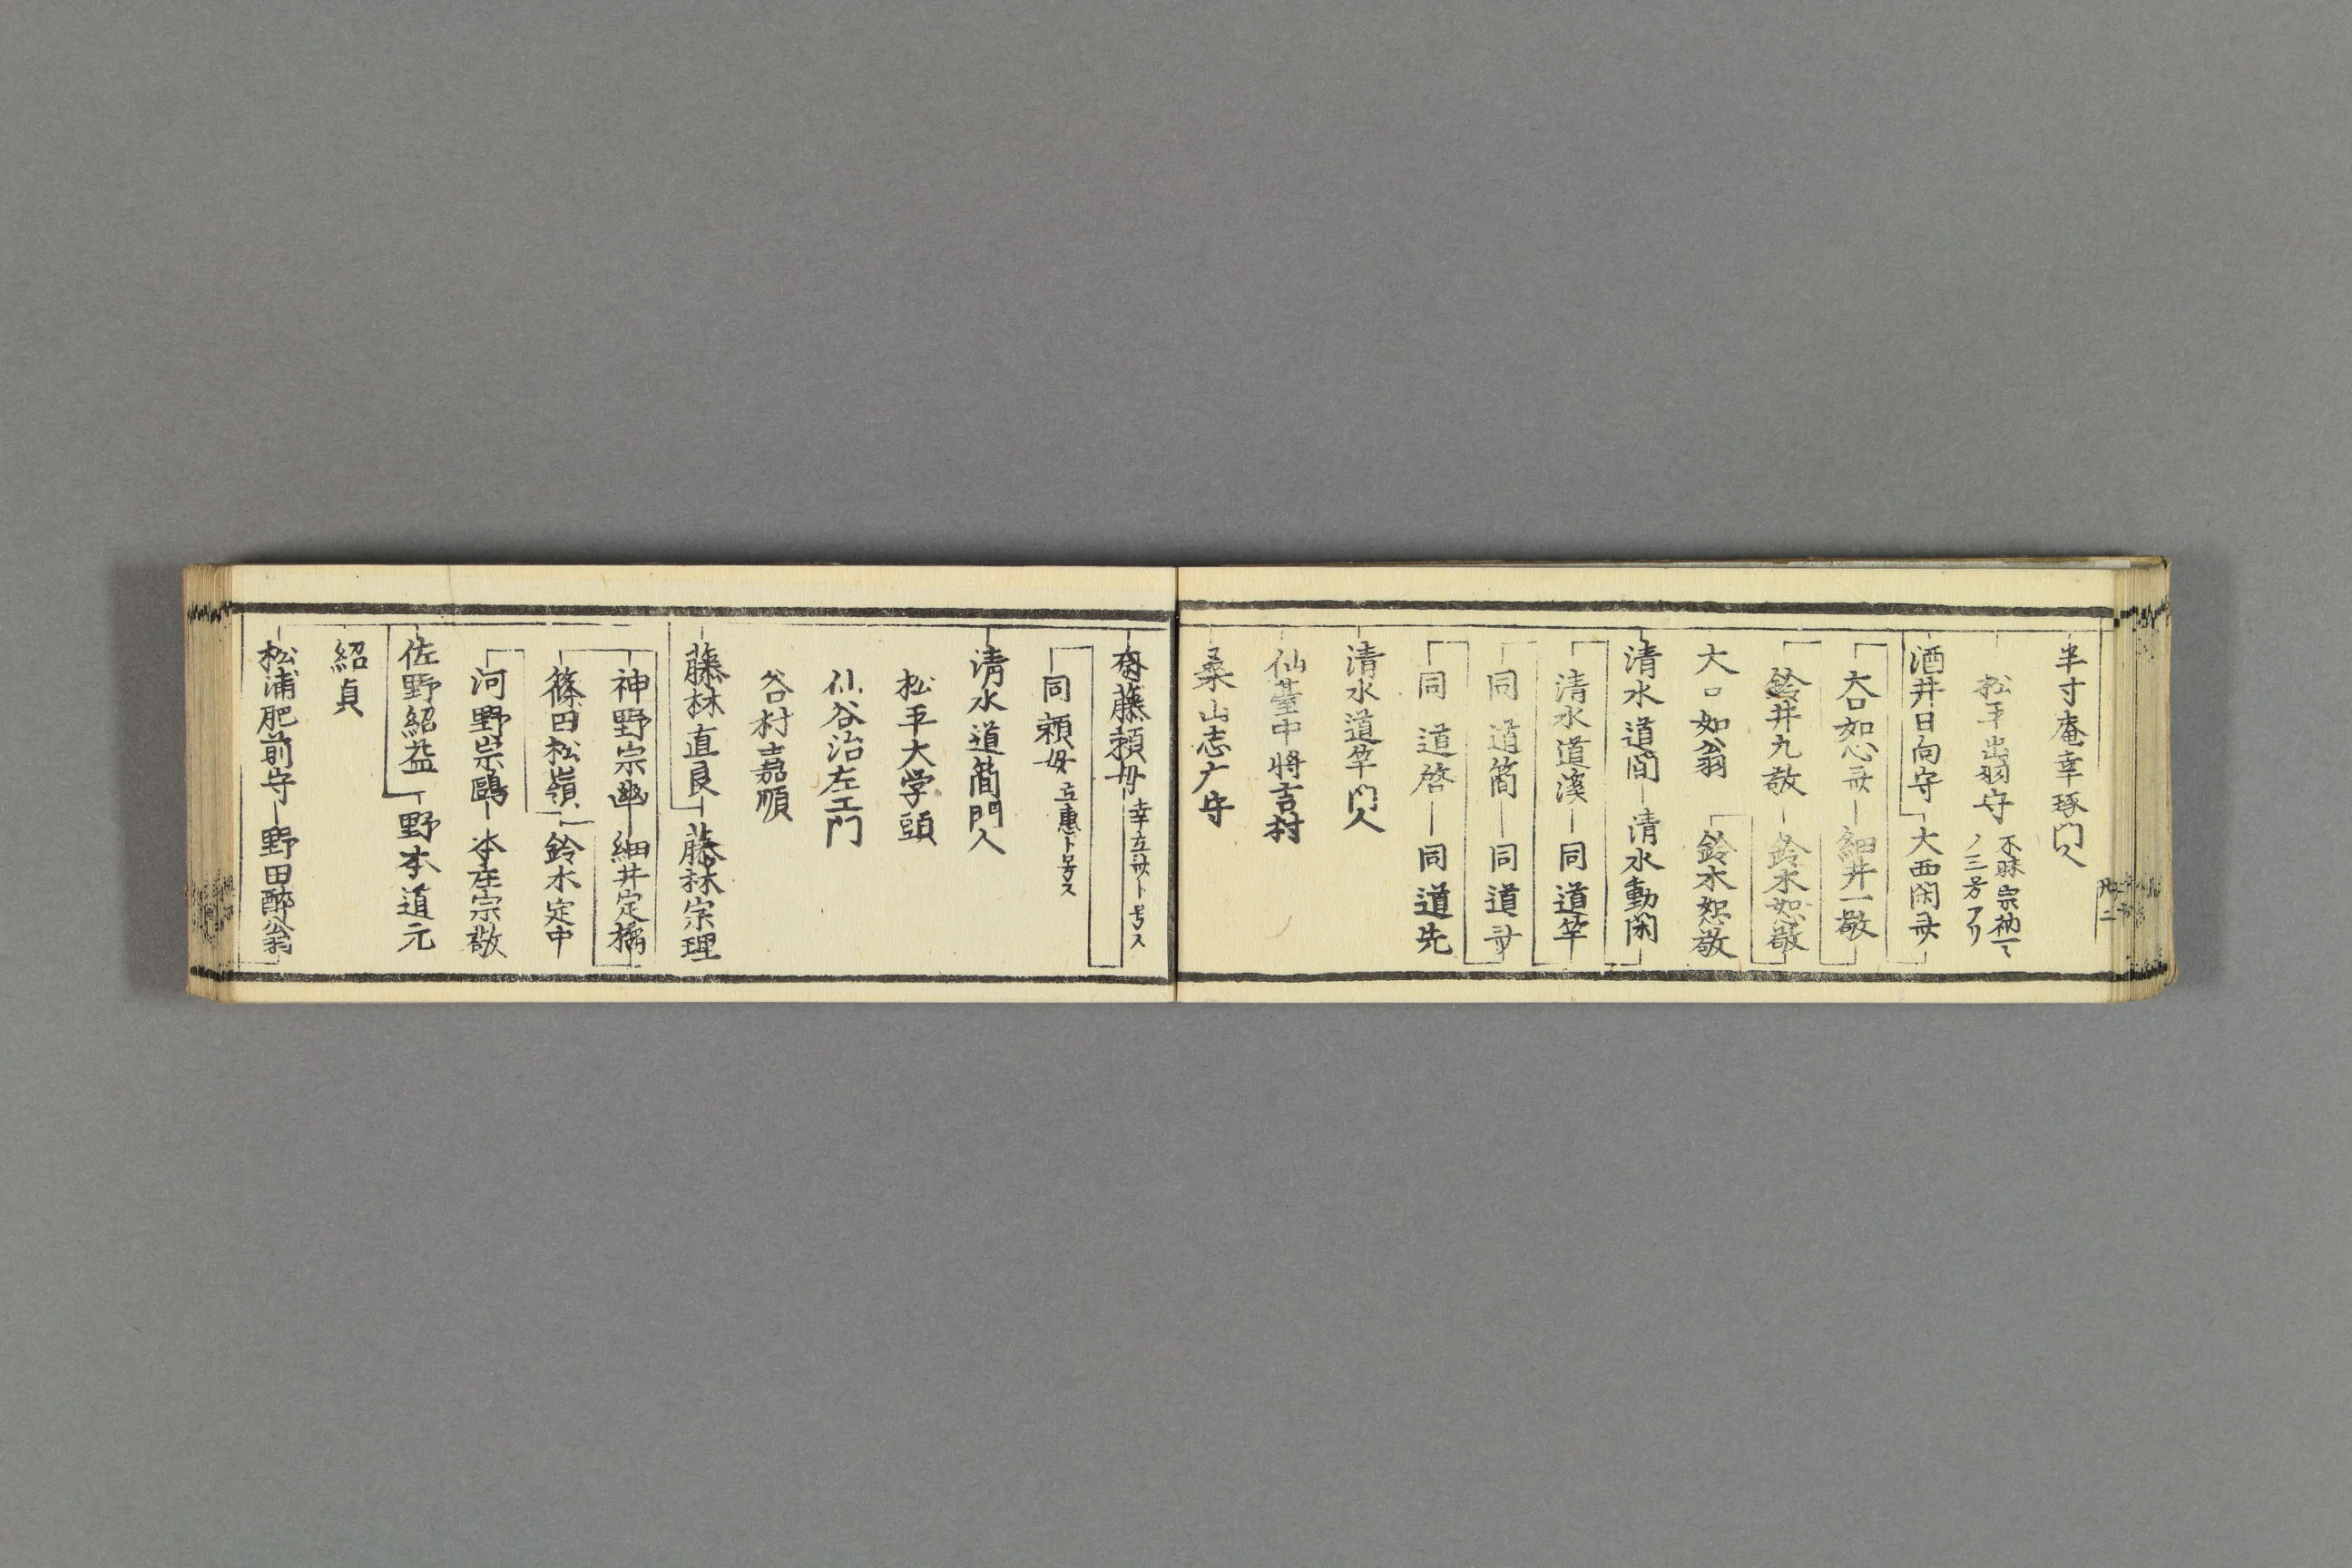 半寸庵幸琢門人
松平出羽守 不昧宗衲一々
ノ三号アリ
酒井日向守 大西閑斎
大口如心斎 細井一敬
鈴井九敬 鈴木恕敬
大口如翁 鈴木恕敬
清水道簡 清水動閑
清水道溪 同道竿
同道簡 同道斎
同道啓 同道先
清水道竿門人
仙䑓中将吉村
桑山志广守
斎藤頼母 幸立斎ト号ス
同頼母 立惠ト号ス
清水道簡門人
松平大学頭
仏谷治左エ門
谷村嘉順
藤林直良 藤林宗理
神野宗幽 細井定橘
篠田松嶺 鈴木定中
河野宗鷗 本庄宗敬
佐野紹益 野本道元
紹貞
松浦肥前守 野田酔翁